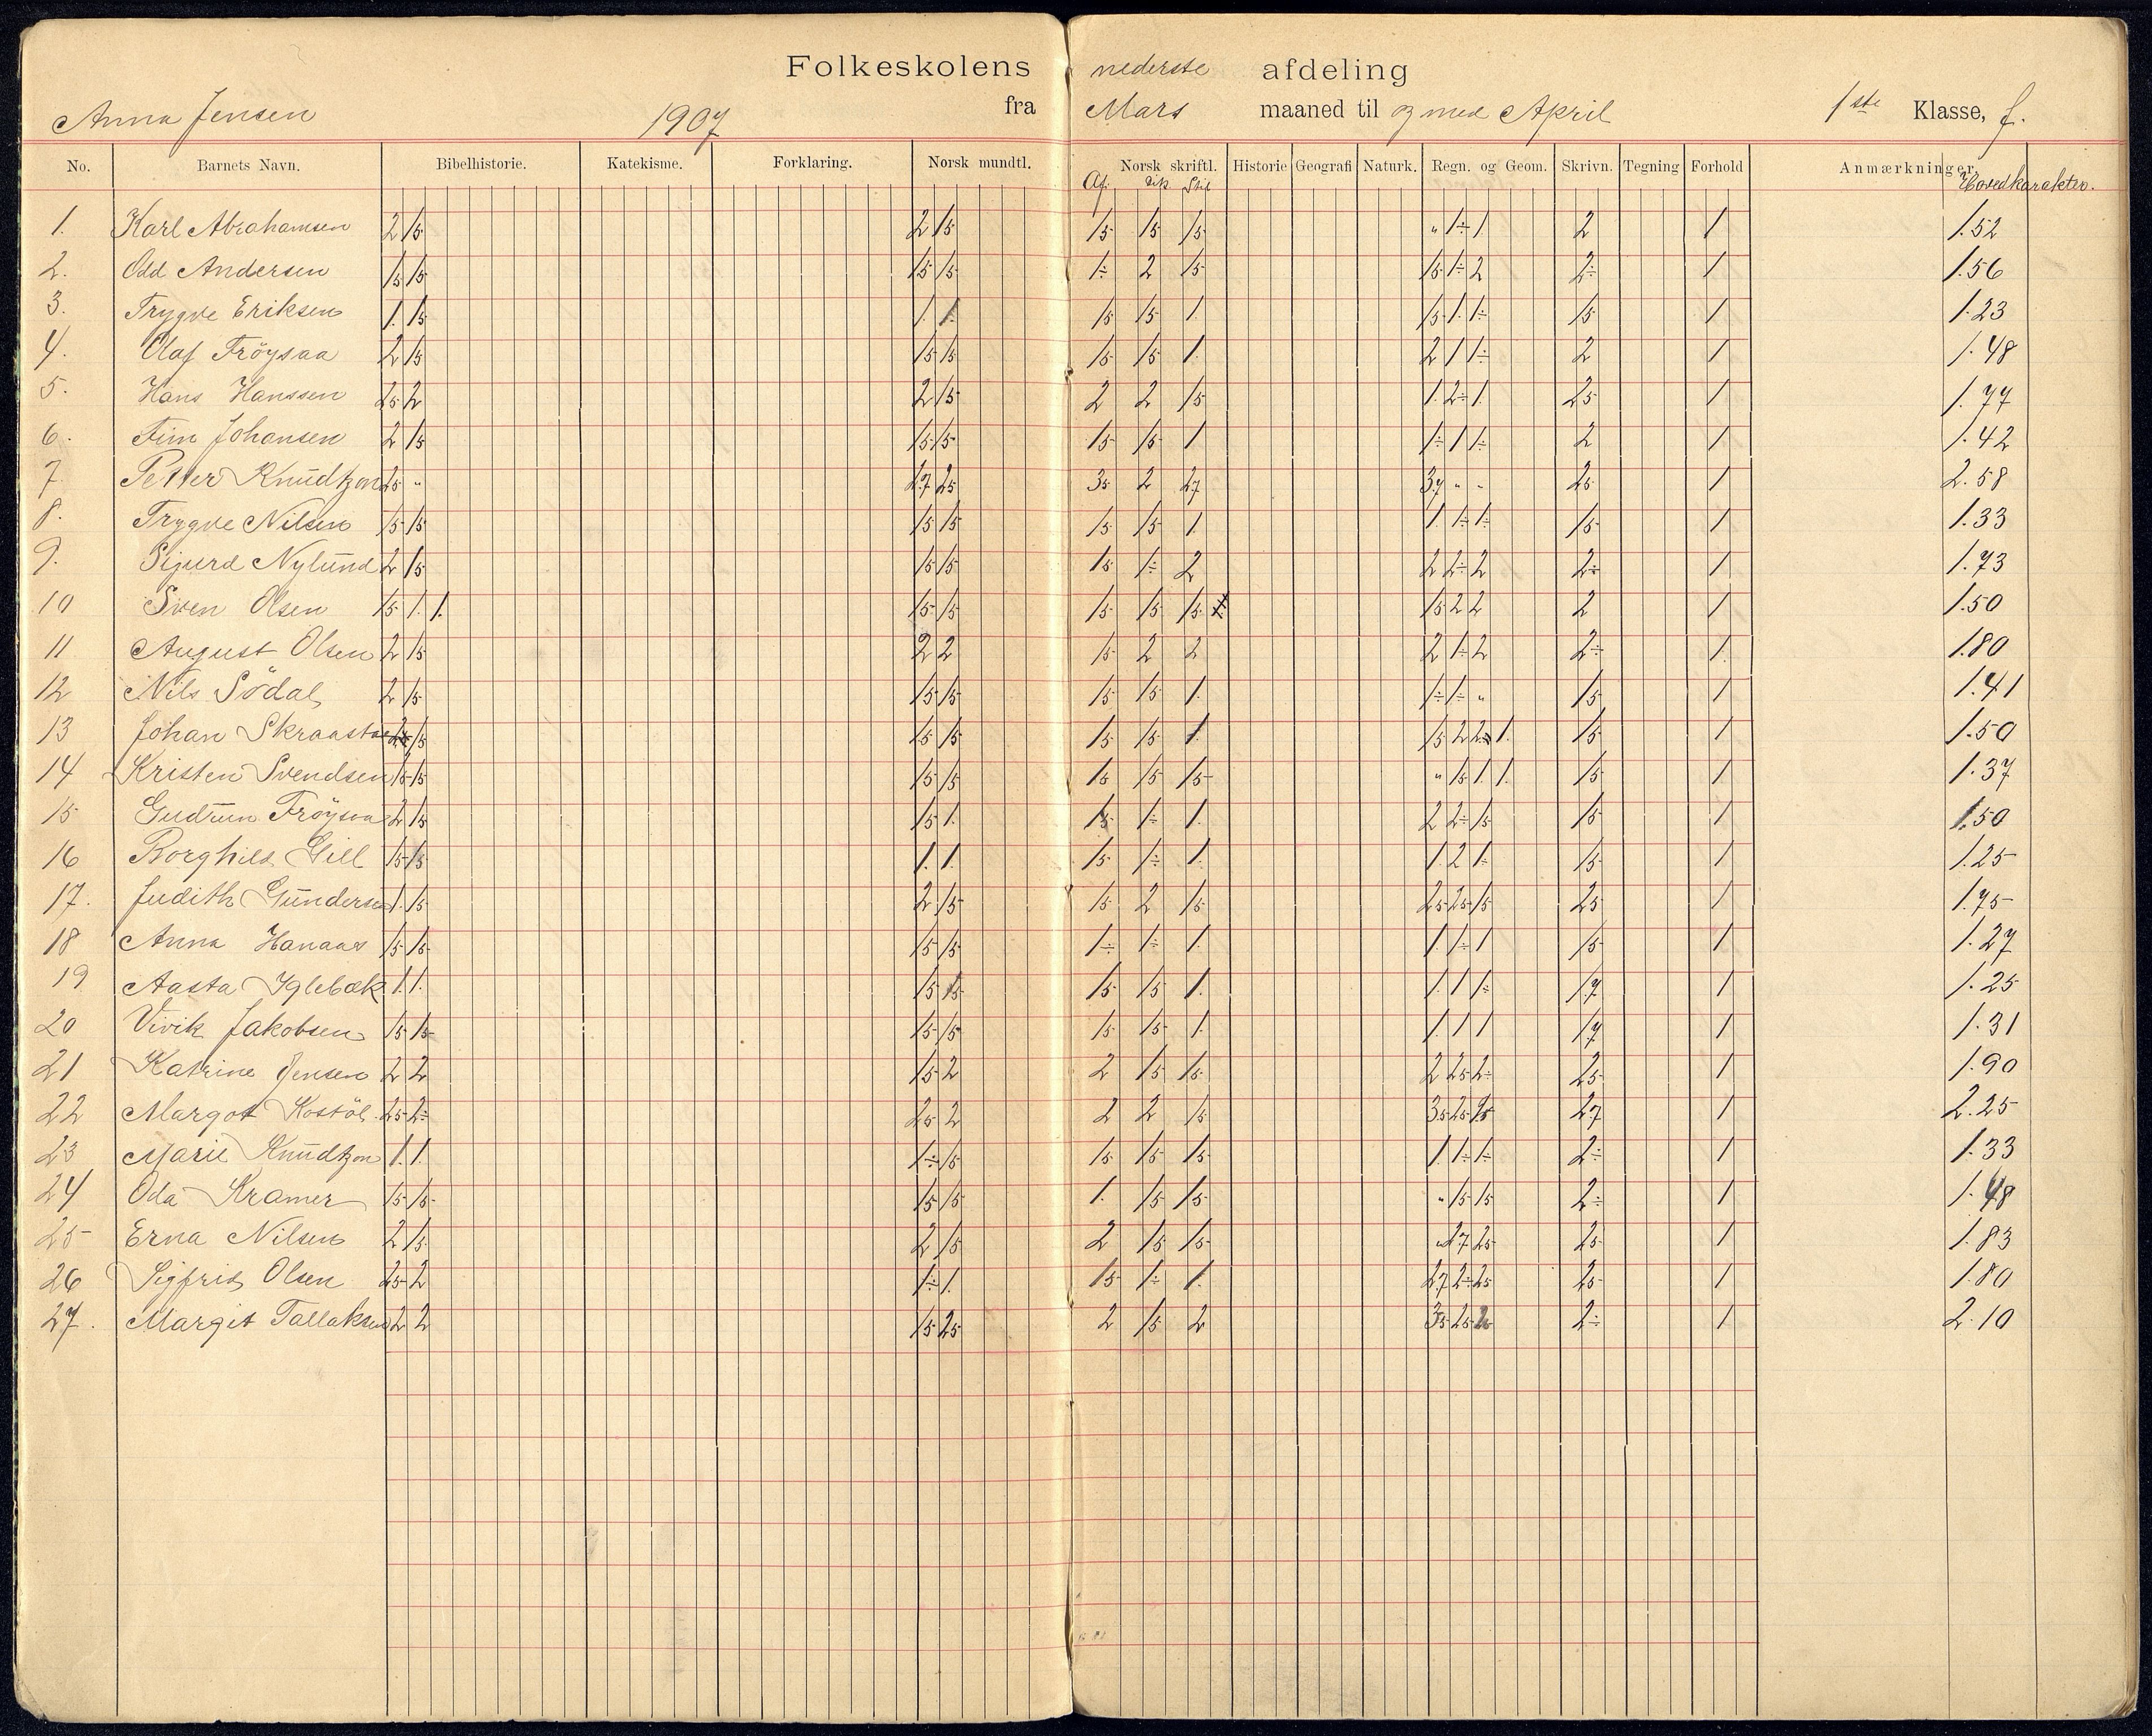 Folkeskolens nederste afdeling
Anna Jensen 1907 fra Mars maaned til og med April 1ste Klasse, f.
No. Barnets Navn. Bibelhistorie. Katekisme. Forklaring. Norsk mundtl. Norsk skriftl. Historie Geografi Naturk. Regn. og Geom. Skrivn. Tegning Forhold Anmærkninger
Af. Dik. Stil Hovedkarakter.
1. Karl Abrahamsen 2 15 2 15 15 15 15 " 1÷ 1 2 1 1.52
2. Odd Andersen 15 15 15 15 1÷ 2 15 15 1÷ 2 2÷ 1 1.56
3. Trygve Eriksen 1. 15 1. 1. 15 15 1 15 1. 1÷ 15 1 1.23
4. Olaf Fröysaa 2 15 15 15 15 15 1. 2 1 1÷ 2 1 1.48
5. Hans Hanssen 25 2 2 15 2 2 15 1. 2÷ 1. 25 1 1.77
6. Finn Johansen 2 15 15 15 15 15 1 1÷ 1 1÷ 2 1 1.42
7 Petter Knudtzon 25 " 27 25 35 2 27 37 " " 25 1 2.58
8. Trygve Nilsen 15 15 15 15 15 15 1. 1 1÷ 1÷ 15 1 1.33
9. Sigurd Nylund 2 15 15 15 15 1÷ 2 2 2÷ 2 2÷ 1 1.73
10 Sven Olsen 15 1. 1. 15 15 15 15 15 15 2 2 2 1 1.50
11 August Olsen 2 15 2 2 15 2 2 2 1÷ 2 2÷ 1. 1.80
12 Nils Södal 2 15 15 15 15 15 1. 1÷ 1÷ " 15 1 1.41
13 Johan 15 15 15 15 15 1 15 2 2 1. 15 1 1.50
14 Kristen Svendsen 15 15 15 15 15 15 15 " 15 1. 1. 15 1 1.37
15 Gudrun Fröysaa 2 15 15 1. 15 1÷ 1. 2 2÷ 15 15 1 1.50
16 Borghild Gill 15 15 1. 1. 15 1÷ 1. 1. 2 1÷ 15 1 1.25
17. Judith Gundersen 1. 15 2 15 15 2 15 25 25 15 25 1 1.75
18 Anna Hanaas 15 15 15 15 1÷ 1÷ 1. 1 1÷ 1 15 1 1.27
19 Aasta Iglebæk 1. 1. 15 15 15 15 1. 1. 1 1÷ 17 1 1.25
20 Vivik Jakobsen 15 15 15 15 15 15 1. 1. 1 1 17 1 1.31
21 Katrine Jensen 2 2 15 2 2 15 15 2 25 2÷ 25 1 1.90
22 Margot Kostöl 25 2÷ 25 2 2 2 15 35 25 27 1 2.25
23 Marie Knudtzon 1. 1. 1÷ 15 15 15 15 1. 1÷ 1÷ 2÷ 1 1.33
24 Oda Kramer 15 15 15 15 1. 15 15 " 15 15 2÷ 1 1.48
25 Erna Nilsen 2 15 2 15 2 15 15 " 27 25 25 1 1.83
26 Sigfrid Olsen 25 2 1÷ 1. 15 1÷ 1. 27 2÷ 25 25 1 1.80
27. Margit Tallaksen 2 2 15 25 2 15 2 35 25 2÷ 1 2.10